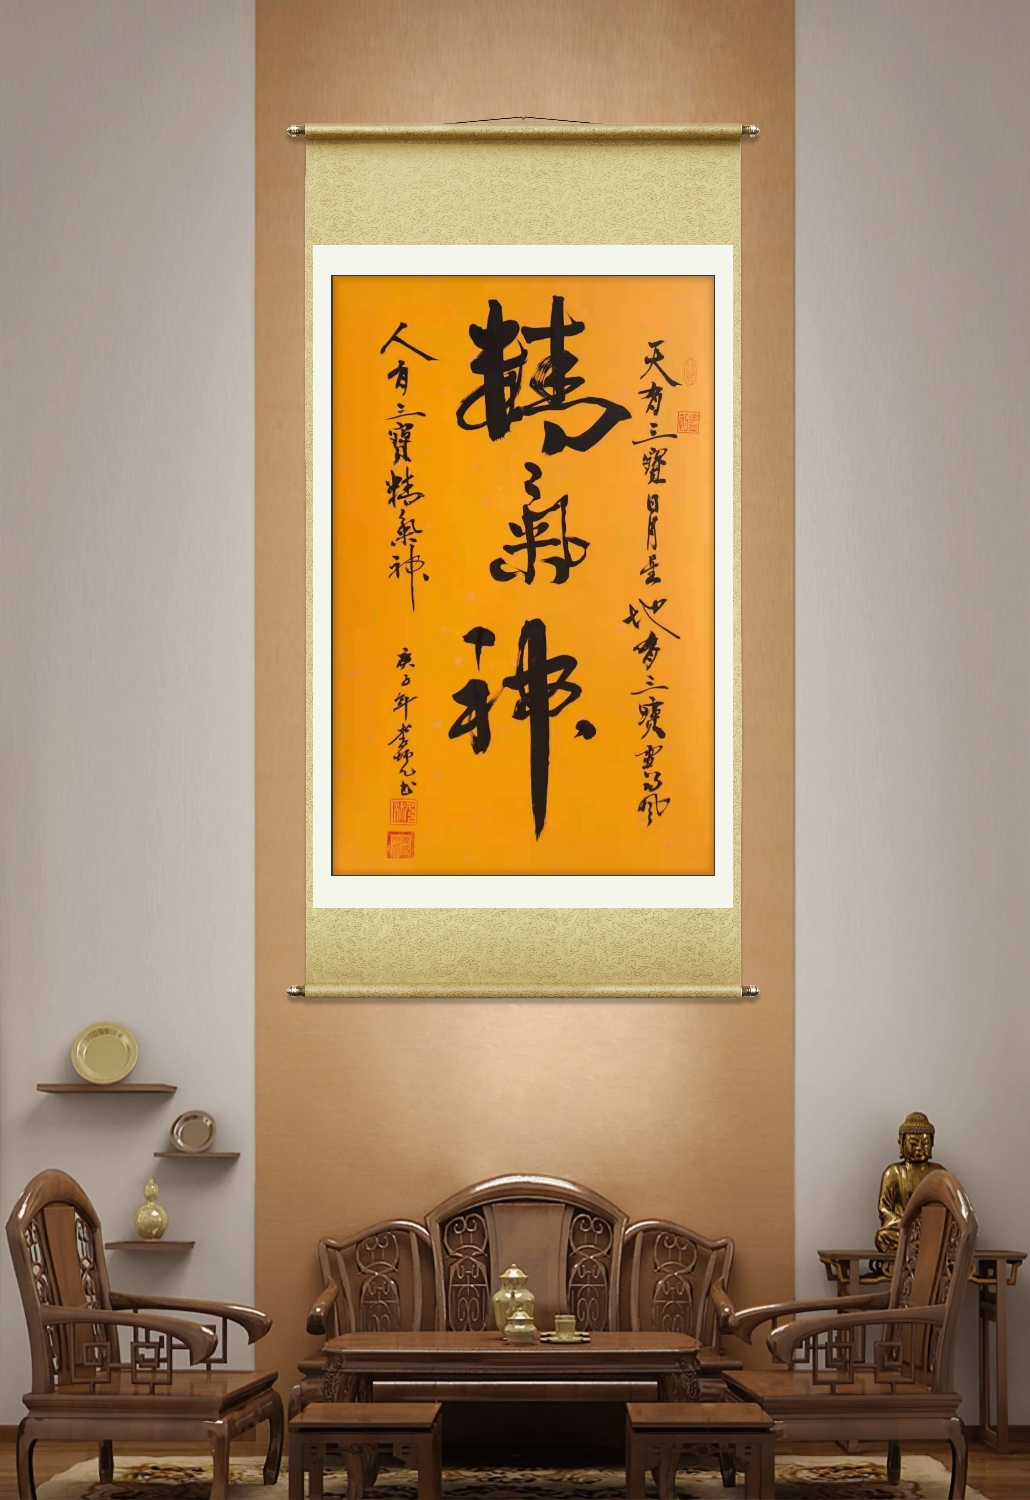 天有三寶日月星地有三寶風
精氣神
人有三寶精氣神
庚子年
书